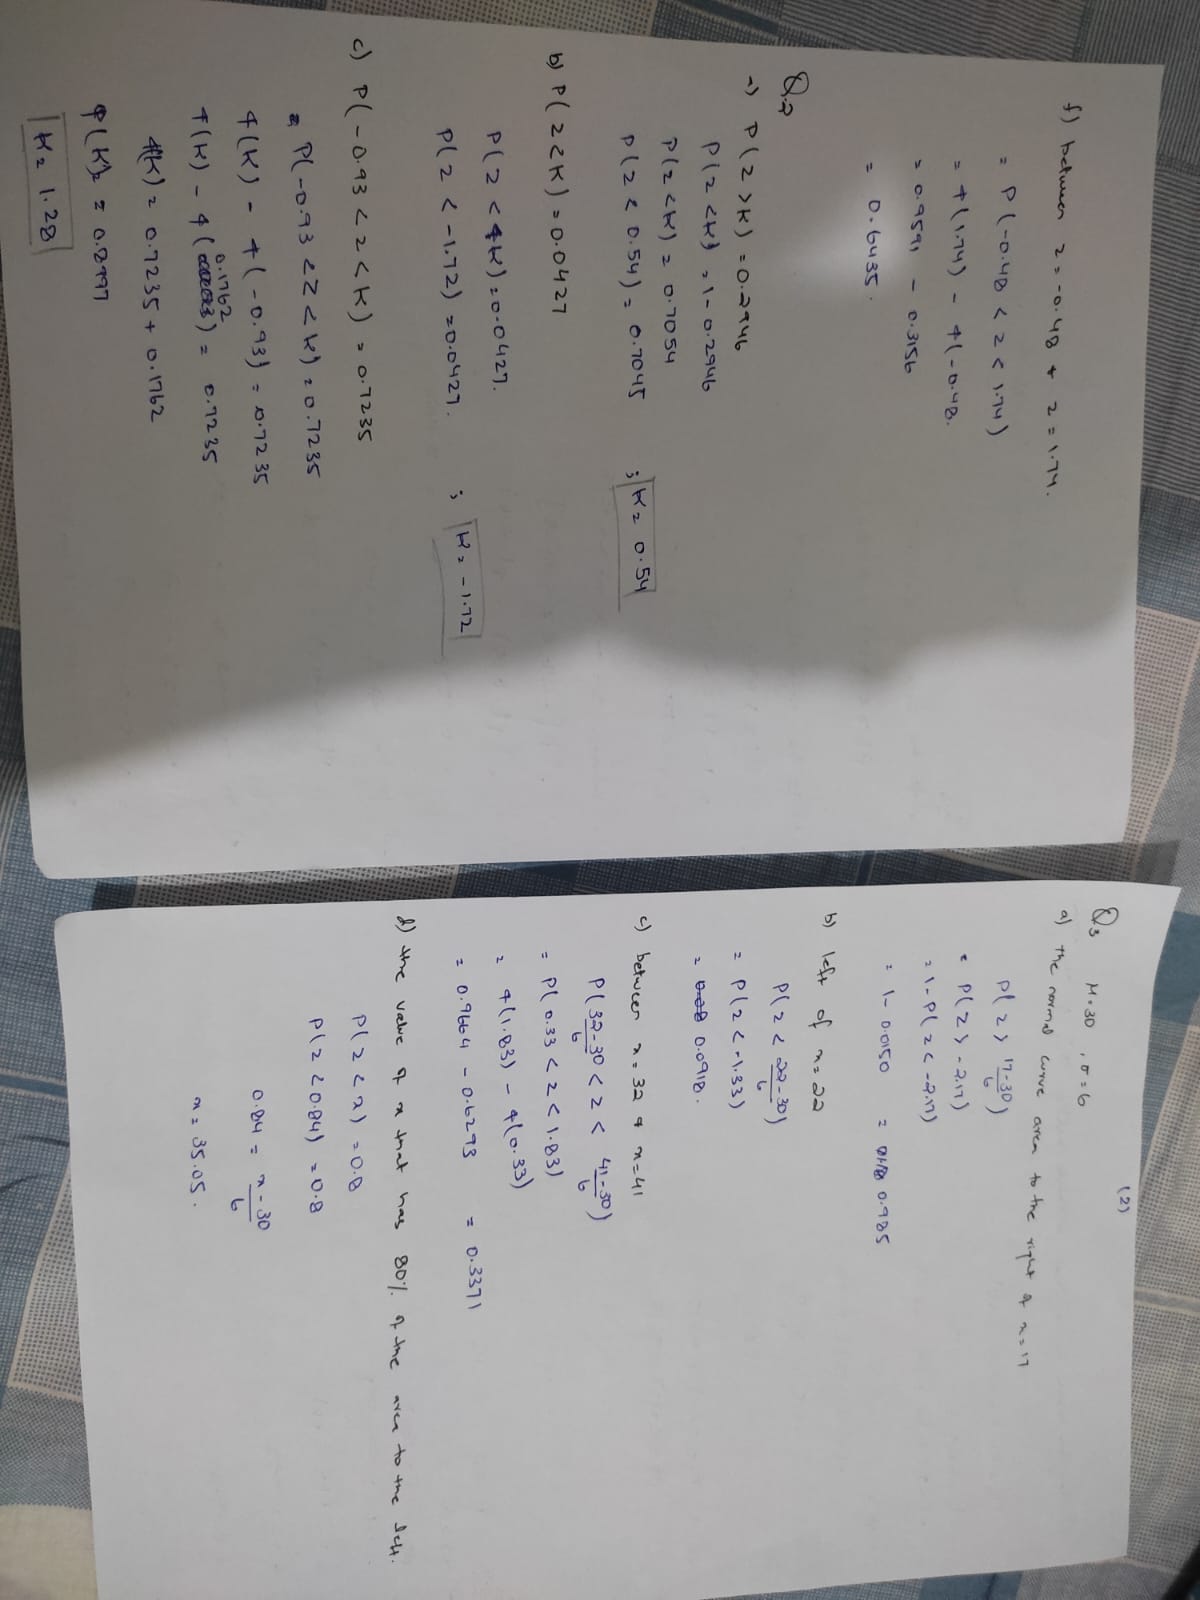 f) between z = -0.48 & z = 1.74.
= P(-0.48 < z < 1.74)
= φ(1.74) - φ(-0.48.
= 0.9591 - 0.3156
= 0.6435.
Q.2
a) P(z > K) = 0.2946
P(z < K) = 1 - 0.2946
P(z < K) = 0.7054
P(z < 0.54) = 0.7045 ; K = 0.54
b) P(z < K) = 0.0427
P(z < K) = 0.0427.
P(z < -1.72) = 0.0427. ; K = -1.72
c) P(-0.93 < z < K) = 0.7235
= P(-0.93 < Z < K) = 0.7235
φ(K) - φ(-0.93) = 0.7235
0.1762
φ(K) - φ( ) = 0.7235
φ(K) = 0.7235 + 0.1762
φ(K) = 0.8997
K = 1.28
(2)
Q3 M = 30 , σ = 6
a) the normal curve area to the right of x = 17
P(z > 17-30/6)
= P(z > -2.17)
= 1 - P(z < -2.17)
= 1 - 0.0150 = 0.985
b) left of x = 22
P(z < 22-30/6)
= P(z < -1.33)
= 0.0918.
c) between x = 32 & x = 41
P(32-30/6 < z < 41-30/6)
= P(0.33 < z < 1.83)
= φ(1.83) - φ(0.33)
= 0.9664 - 0.6293 = 0.3371
d) the value of x that has 80% of the area to the left.
P(z < x) = 0.8
P(z < 0.84) = 0.8
0.84 = x-30/6
x = 35.05.